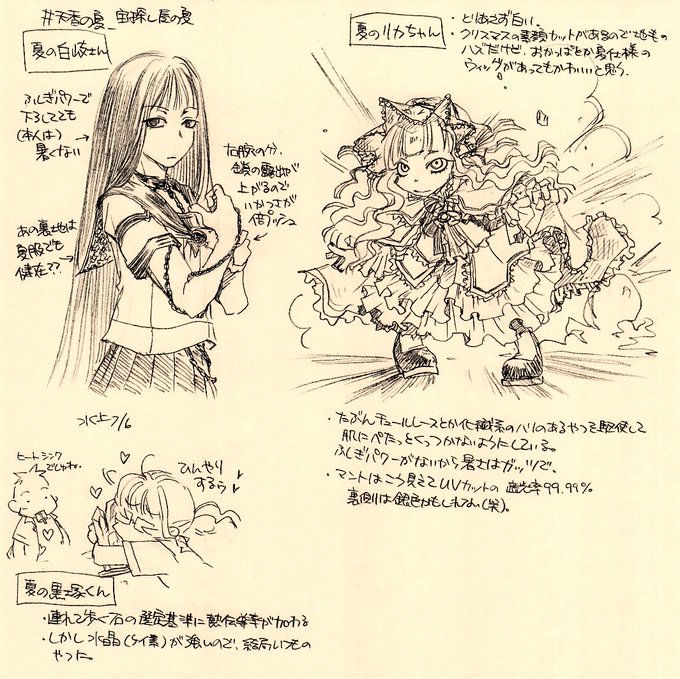 #天香の夏_宝探し屋の夏
夏の白岐さん
ふしぎパワーで
下ろしてても
(本人は)
暑くない
右腕の分、
鎖の露出が
上がるので
いかつさが
倍プッシュ
あの裏地は
夏服でも
健在??
夏のリカちゃん
・とりあえず白い。
・クリスマスの素顔カットがあるので地毛の
ハズだけど、おかっぱとか夏仕様の
ウィッグがあってもかわいいと思う。
・たぶんチュールレースとか化繊系のハリのあるやつを駆使して
肌にペたっとくっつかないようにしている。
ふしぎパワーがないから暑さはガッツで。
・マントはこう見えてUVカットの遮光率99.99%
裏側は銀色かもしれない(笑)。
ヒートシンク
でしゅね。
ひんやり
するぅ
夏の黒塚くん
・連れて歩く石の選定基準に熱伝導率が加わる
・しかし水晶(ケイ素)が強いので、結局いつもの
やつだ。